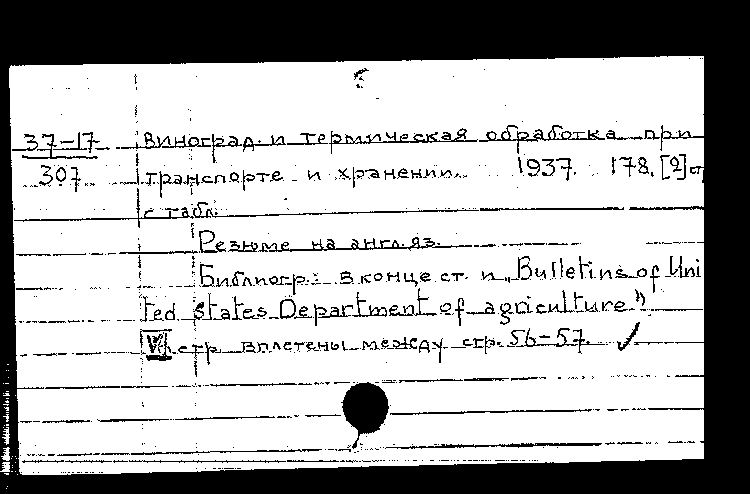 37-17 Виноград и термическая обработка при
307 транспорте и хранении. 1937. 178. [2] ст
с табл.
Резюме на англ. яз.
Библиогр.: в конце ст. и „Bulletins of Uni
ted States Department of agriculture"
стр. вплетены между стр. 56-57.